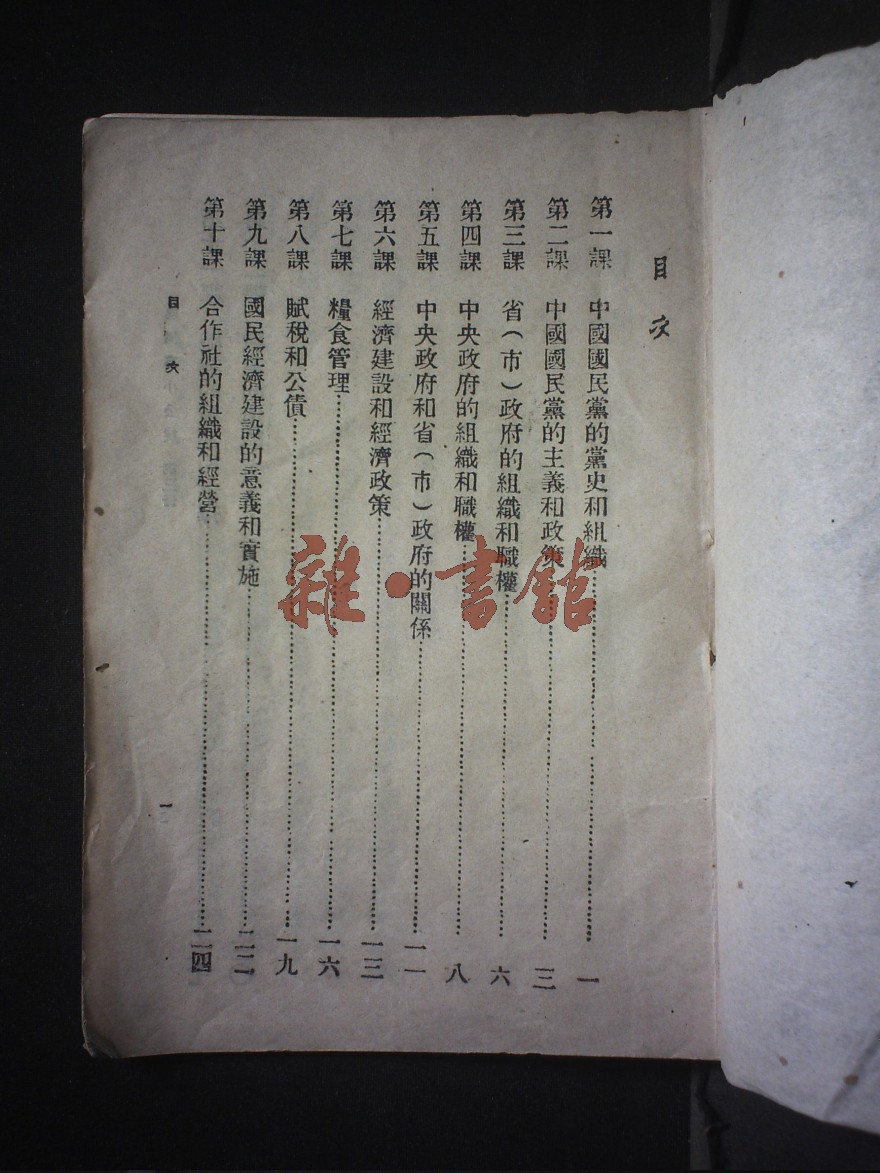 目次
第一課 中國國民黨的黨史和組織……一
第二課 中國國民黨的主義和政策……三
第三課 省(市)政府的組織和職權……六
第四課 中央政府的組織和職權……八
第五課 中央政府和省(市)政府的關係……一一
第六課 經濟建設和經濟政策……一三
第七課 糧食管理……一六
第八課 賦稅和公債……一九
第九課 國民經濟建設的意義和實施……二二
第十課 合作社的組織和經營……二四
目次
一
雜·書館